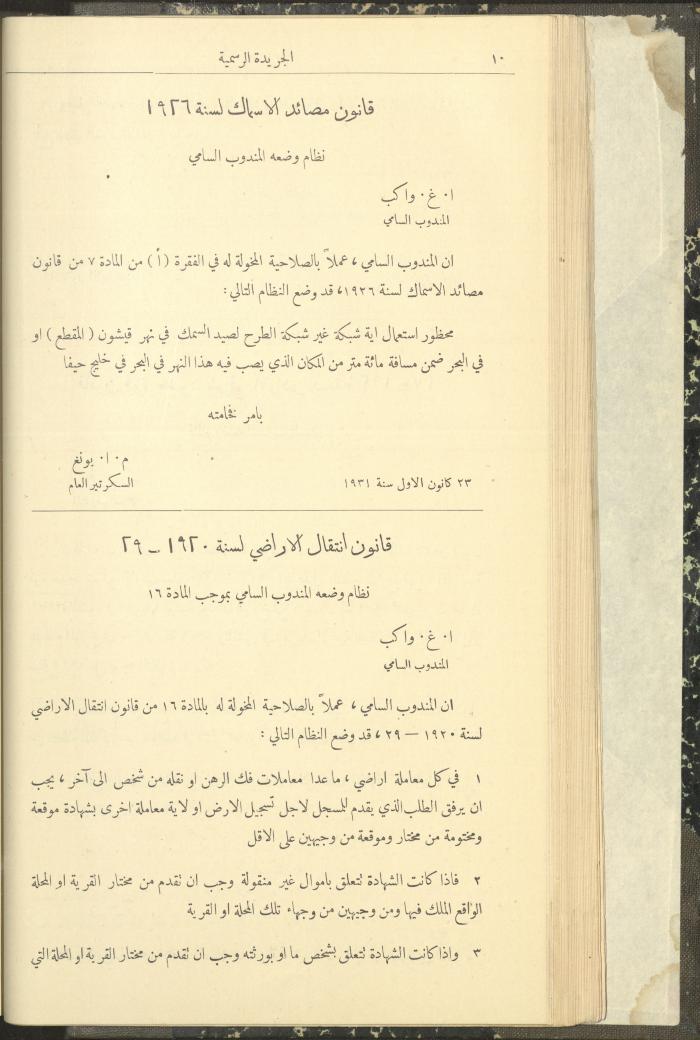 ١٠ الجريدة الرسمية
قانون مصائد الاسماك لسنة ١٩٢٦
نظام وضعه المندوب السامي
ا٠ غ٠ واكب
المندوب السامي
ان المندوب السامي ، عملاً بالصلاحية المخولة له في الفقرة (أ) من المادة ٧ من قانون
مصائد الاسماك لسنة ١٩٢٦، قد وضع النظام التالي:
محظور استعمال اية شبكة غير شبكة الطرح لصيد السمك في نهر قيشون (المقطع) او
في البحر ضمن مسافة مائة متر من المكان الذي يصب فيه هذا النهر في البحر في خليج حيفا
بامر فخامته
م٠ ا٠ يونغ
٢٣ كانون الاول سنة ١٩٣١ السكرتير العام
قانون انتقال الاراضي لسنة ١٩٢٠ – ٢٩
نظام وضعه المندوب السامي بموجب المادة ١٦
ا٠ غ٠ واكب
المندوب السامي
ان المندوب السامي ، عملاً بالصلاحية المخولة له بالمادة ١٦ من قانون انتقال الاراضي
لسنة ١٩٢٠ — ٢٩ ، قد وضع النظام التالي :
١ في كل معاملة اراضي ، ما عدا معاملات فك الرهن او نقله من شخص الى آخر ، يجب
ان يرفق الطلب الذي يقدم للمسجل لاجل تسجيل الارض او لاية معاملة اخرى بشهادة موقعة
ومختومة من مختار وموقعة من وجيهين على الاقل
٢ فاذا كانت الشهادة تتعلق باموال غير منقولة وجب ان تقدم من مختار القرية او المحلة
الواقع الملك فيها ومن وجيهين من وجهاء تلك المحلة او القرية
٣ واذا كانت الشهادة تتعلق بشخص ما او بورثته وجب ان تقدم من مختار القرية او المحلة التي